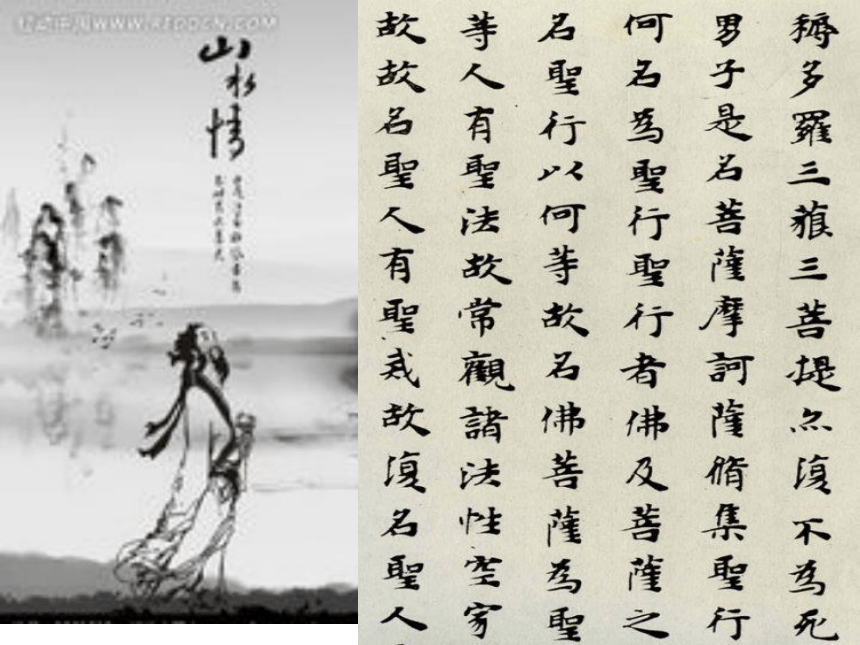 红动中国WWW.REDOCN.COM
山水情
耨多羅三藐三菩提亦復不為死
男子是名菩薩摩訶薩脩集聖行
何名為聖行聖行者佛及菩薩之
名聖行以何等故名佛菩薩為聖
等人有聖法故常觀諸法性空寂
故故名聖人有聖戒故復名聖人